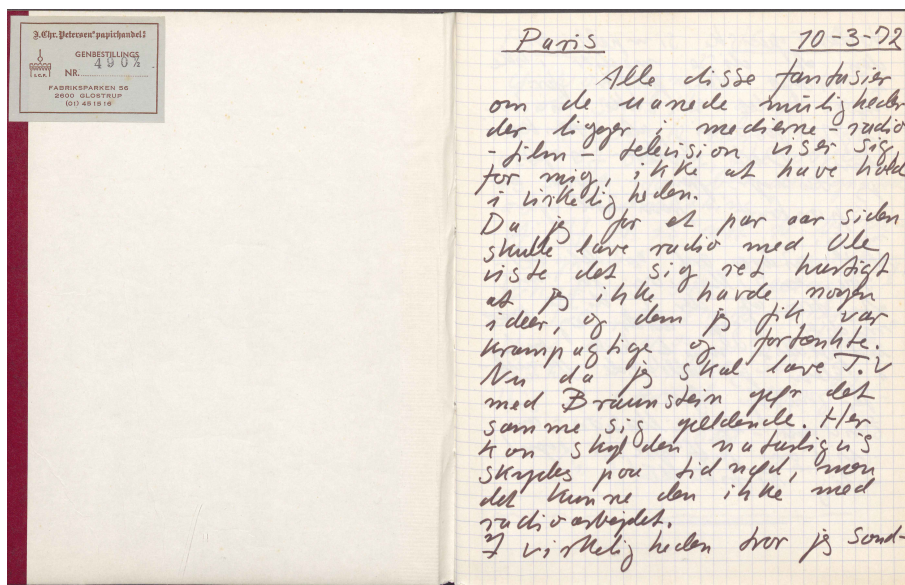 J. Chr. Petersens papirhandel
GENBESTILLINGS
NR. 4907
J.C.P.
FABRIKSPARKEN 56
2600 GLOSTRUP
(01) 45 15 16
Paris 10-3-72
Alle disse fantasier
om de uanede muligheder
der ligger i medierne - radio
- film - television viser sig
for mig, ikke at have hold
i virkeligheden.
Da jeg for et par aar siden
skulle lave radio med Ole
viste det sig ret hurtigt
at jeg ikke havde nogen
ideer, og dem jeg fik var
krampagtige og fortænkte.
Nu da jeg skal lave T.V
med Braunstein gør det
samme sig gældende. Her
kan skylden naturligvis
skydes paa tidnød, men
det kunne den ikke med
radioarbejdet.
I virkeligheden tror jeg sond-